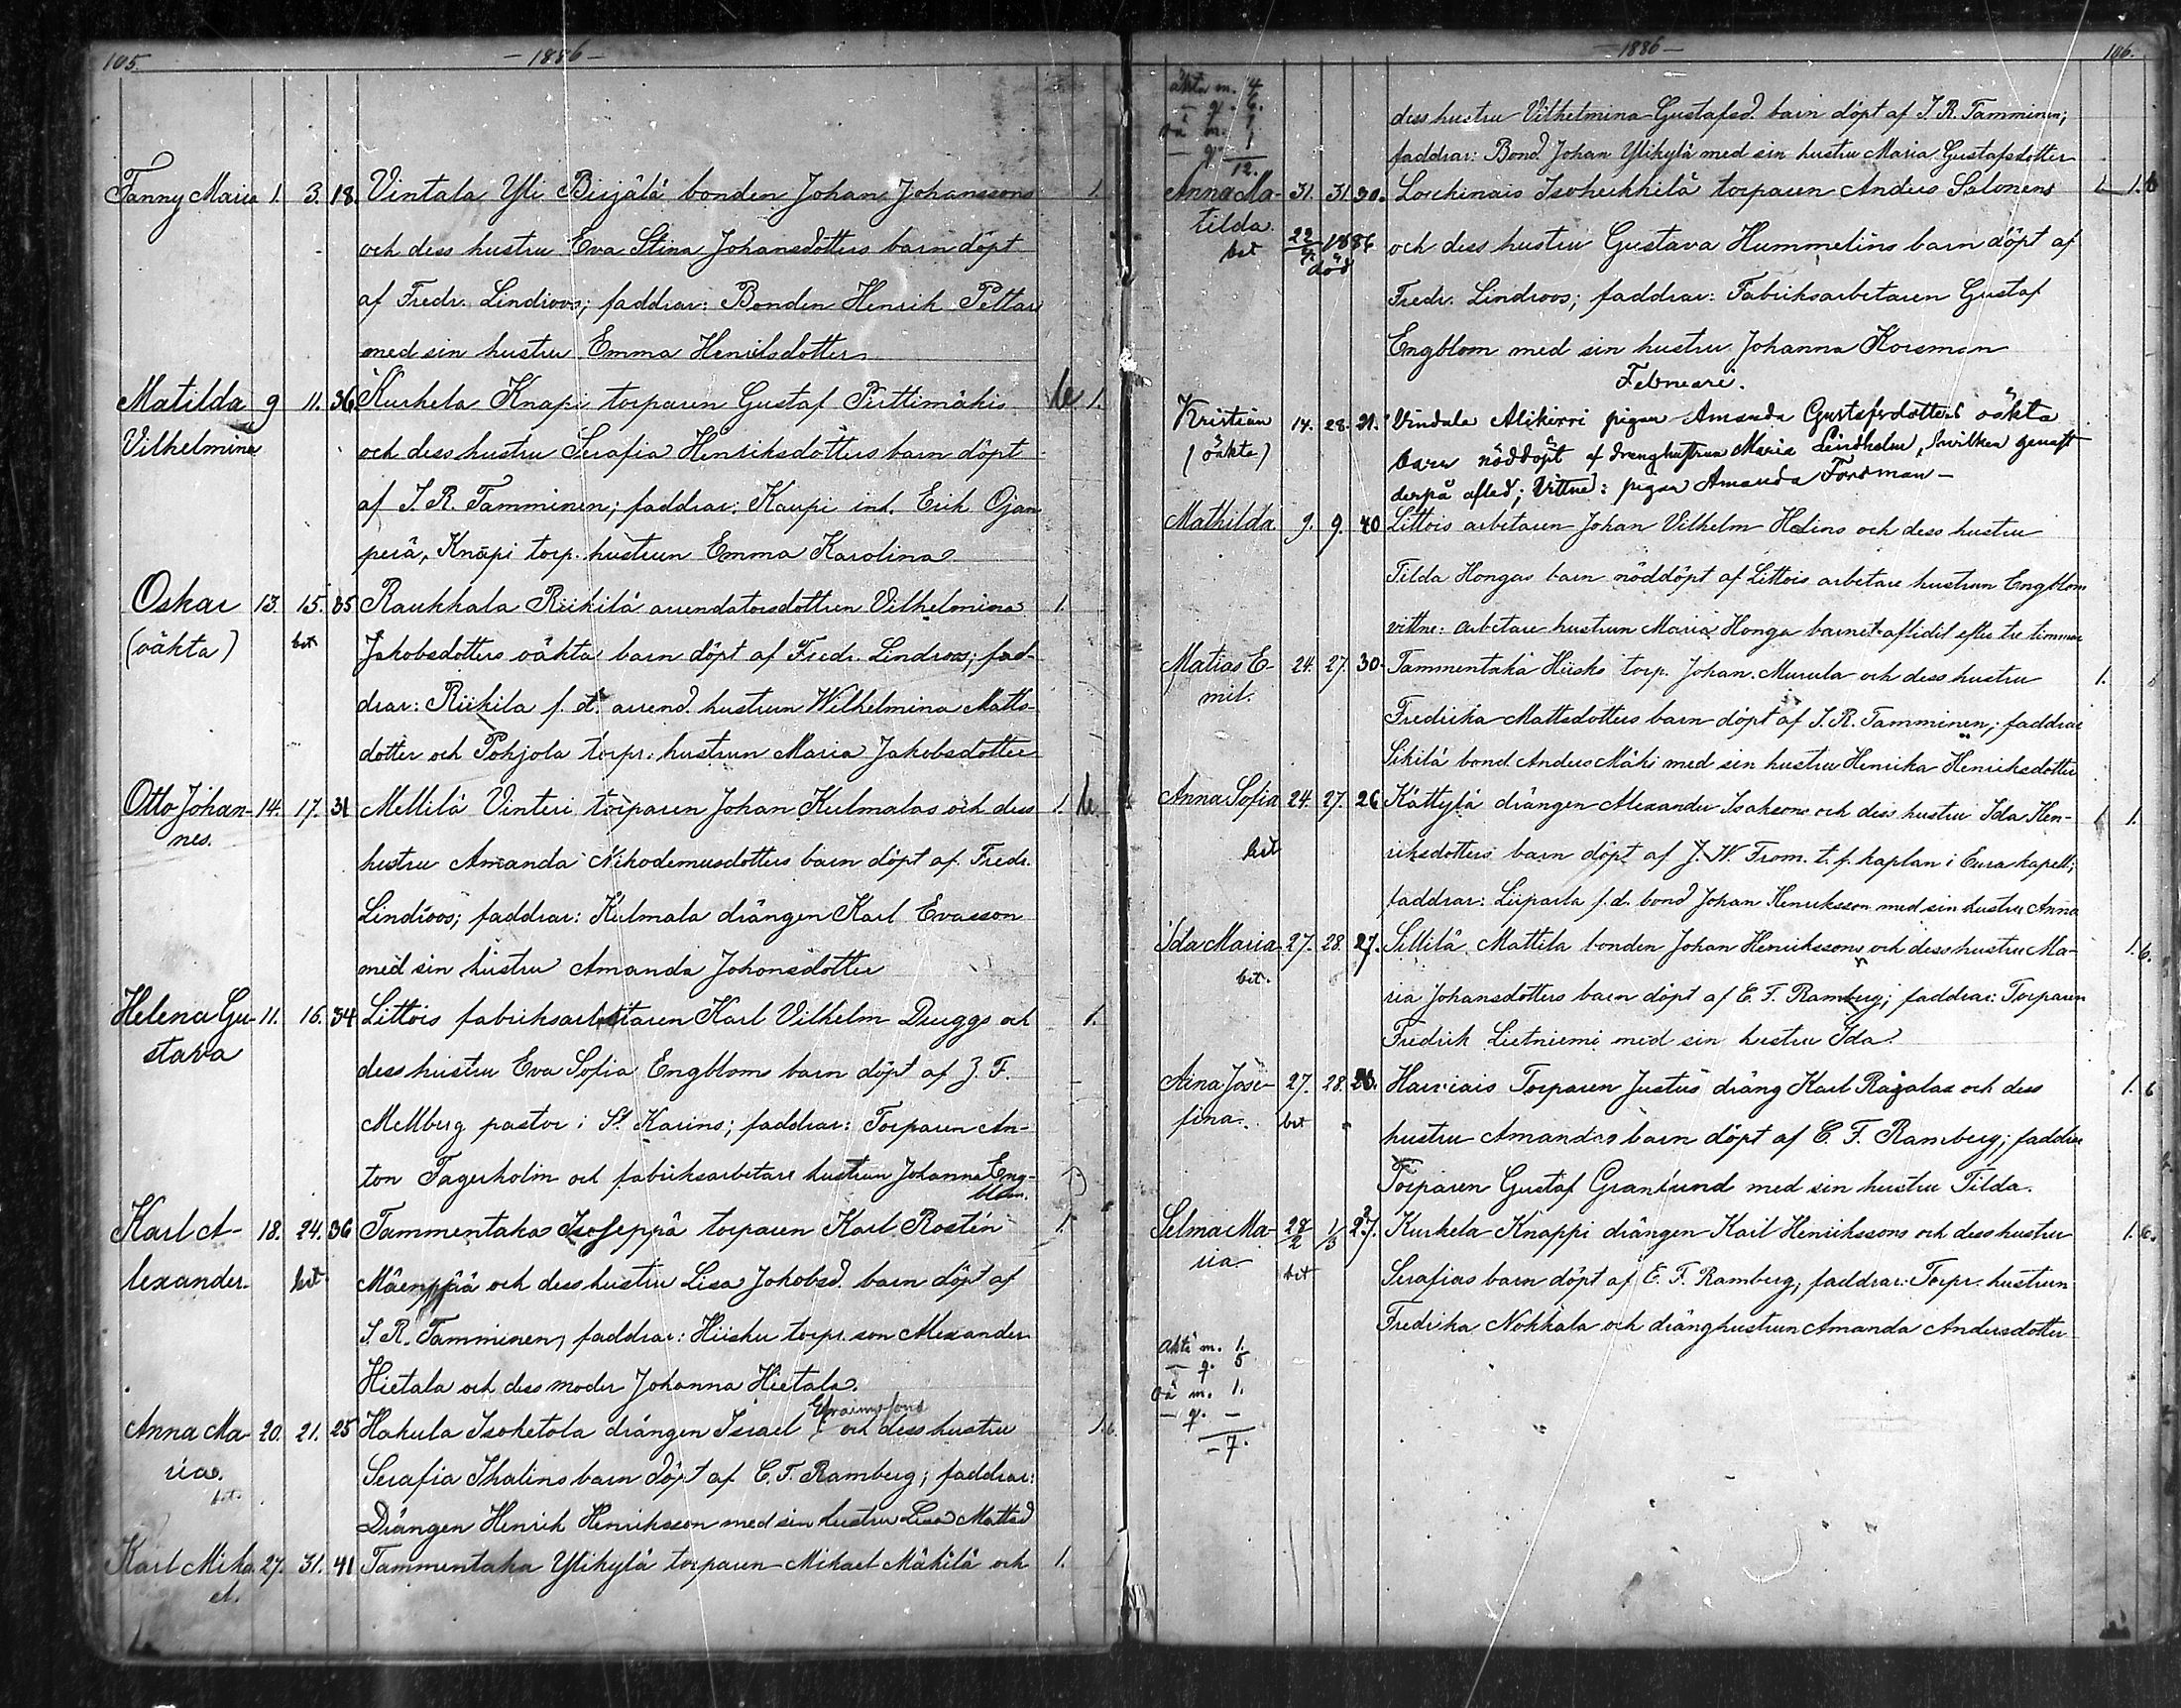 105.
- 1886 -
Fanny Maria 1. 3. 18. Vintala Yli Birjälä bonden Johan Johanssons 1.
och dess hustru Eva Stina Johansdotters barn döpt
af Fredr. Lindroos; faddrar: Bonden Henrik Pettars
med sin hustru Emma Henriksdotter
Matilda 9 11. 36. Kurkela Knapi torparen Gustaf Perttimäkis 1.
Vilhelmina och dess hustru Serafia Henriksdotters barn döpt
af I. R. Tamminen; faddrar: Kaupi ind. Erik Ojan
perä, Knapi torp. hustrun Emma Karolina
Oskar 13. 15. 35 Raukkala Riikilä arrendatorsdottren Vilhelmina 1.
(oäkta) bet Jakobsdotters oäkta barn döpt af Fredr. Lindroos; fad-
drar: Riikila f. d. arrend. hustrun Wilhelmina Matts-
dotter och Pohjola torpr. hustrun Maria Jakobsdotter
Otto Johan- 14. 17. 31 Mellilä Vinteri torparen Johan Kulmalas och dess 1.
nes. hustru Amanda Nikodemusdotters barn döpt af Fredr.
Lindroos; faddrar: Kulmala drängen Karl Evasson
med sin hustru Amanda Johansdotter
Helena Gu- 11. 16. 34 Littois fabriksarbetaren Karl Vilhelm Druggs och 1.
stava dess hustru Eva Sofia Engbloms barn döpt af J. F.
Mellberg pastor i St Karins; faddrar: Torparen An-
ton Fagerholm och fabriksarbetare hustrun Johanna Eng-
blom.
Karl A- 18. 24. 36 Tammentaka Isoseppä torparen Karl Rostén 1.
lexander. bet Mäenpää och dess hustru Lisa Jakobsd. barn döpt af
I. R. Tamminen, faddrar: Hiisku torpr. son Alexander
Hietala och dess moder Johanna Hietala.
Efraimssons
Anna Ma- 20. 21. 25 Hakula Isoketola drängen Israel och dess hustru 1.
ria. Serafia Thalins barn döpt af C. F. Ramberg; faddrar:
bet. Drängen Henrik Henriksson med sin hustru Lisa Mattsd
Karl Mika- 27. 31. 41 Tammentaka Ylikylä torparen Mikael Mäkilä och 1.
el.
- 1886 -
106.
äkta m. 4
- q. 6.
oä m. 1.
- q. 1
12.
dess hustru Vilhelmina Gustafsd. barn döpt af I. R. Tamminen;
faddrar: Bond. Johan Ylikylä med sin hustru Maria Gustafsdotter
Anna Ma- 31. 31 30. Isoheikkilä torparen Anders Salonens 1.
tilda. och dess hustru Gustava Hummelins barn döpt af
bet 1886 död
Fredr. Lindroos; faddrar: Fabriksarbetaren Gustaf
Engblom med sin hustru Johanna Korsman
Februari.
Kristian 14. 28. 21. Vindala Alikirri pigan Amanda Gustafsdotters oäkta
(oäkta) barn nöddöpt af dränghustrun Maria Lindholm, hvilken genast
derpå afled; Vittne: pigan Amanda Forsman -
Mathilda. 9. 9. 40 Littois arbetaren Johan Vilhelm Helins och dess hustru
Tilda Hongas barn nöddöpt af Littois arbetare hustrun Engblom
vittne: arbetare hustrun Maria Honga barnet aflidit efter tre timmar
Matias E- 24. 27. 30. Tammentaka Hiisku torp. Johan Murula och dess hustru 1.
mil. Fredrika Mattsdotters barn döpt af I. R. Tamminen; faddrar
Sikilä bond. Anders Mäki med sin hustru Henrika Henriksdotter
Anna Sofia 24. 27. 26 Kättylä drängen Alexander Isaksons och dess hustru Ida Hen- 1.
bet riksdotters barn döpt af J. W. Trom. t. f. kaplan i Eura kapell;
faddrar: Liiparla f. d. bond Johan Henriksson med sin hustru Anna
Ida Maria 27. 28. 27. Sillilä Mattila bonden Johan Henrikssons och dess hustru Ma- 1.
bet. ria Johansdotters barn döpt af C. F. Ramberg; faddrar: Torparen
Fredrik Lietniemi med sin hustru Ida.
Aina Jose- 27. 28. 26. Harvais Torparen Justus dräng Karl Rajalas och dess 1.
fina. bet hustru Amandas barn döpt af C. F. Ramberg; faddrar
Torparen Gustaf Granlund med sin hustru Tilda.
Selma Ma- 28/2 1/3 27. Kurkela Knappi drängen Karl Henrikssons och dess hustru 1.
ria. bet Serafias barn döpt af C. F. Ramberg; faddrar: Torpr. hustrun
Fredrika Nokkala och dränghustrun Amanda Andersdotter
Äkta m. 1.
- q. 5
oä m. 1.
- q. -
- 7.